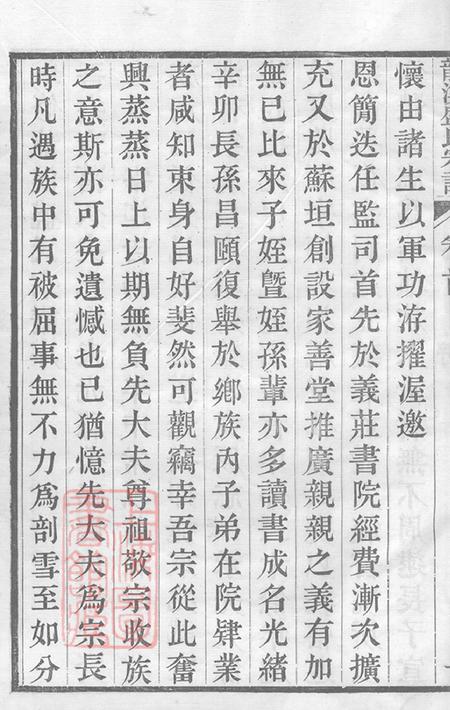 懷由諸生以軍功游擢渥邀
恩簡迭任監司首先於義莊書院經費漸次擴
充又於蘇垣創設家善堂推廣親親之義有加
無已比來子姪曁姪孫輩亦多讀書成名光緒
辛卯長孫昌頤復舉於鄉族內子弟在院肄業
者咸知束身自好斐然可觀竊幸吾宗從此奮
興蒸蒸日上以期無負先大夫尊祖敬宗收族
之意斯亦可免遺憾也已猶憶先大夫爲宗長
時凡遇族中有被屈事無不力爲剖雪至如分